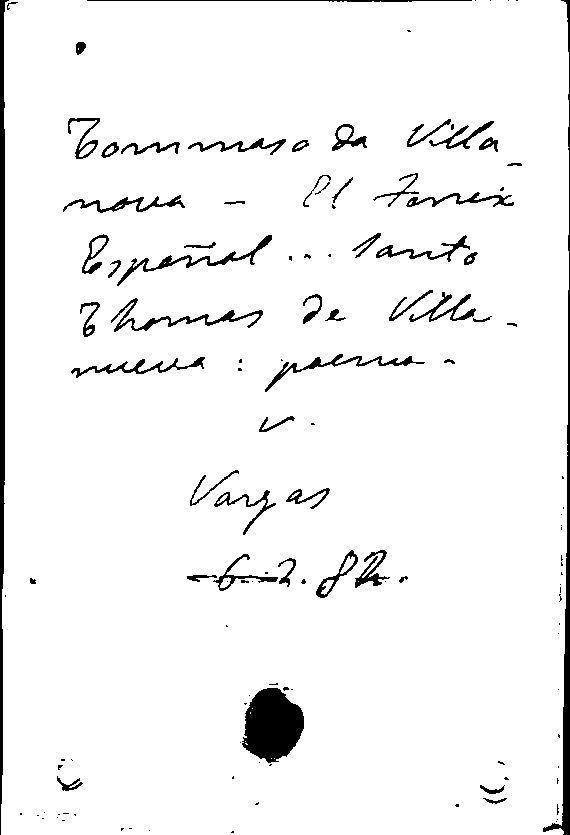 Tommaso da Villa-
nova - El Fenix
Español ... Santo
Thomas de Villa-
nueva : poema -
v.
Vargas
6.2.82.